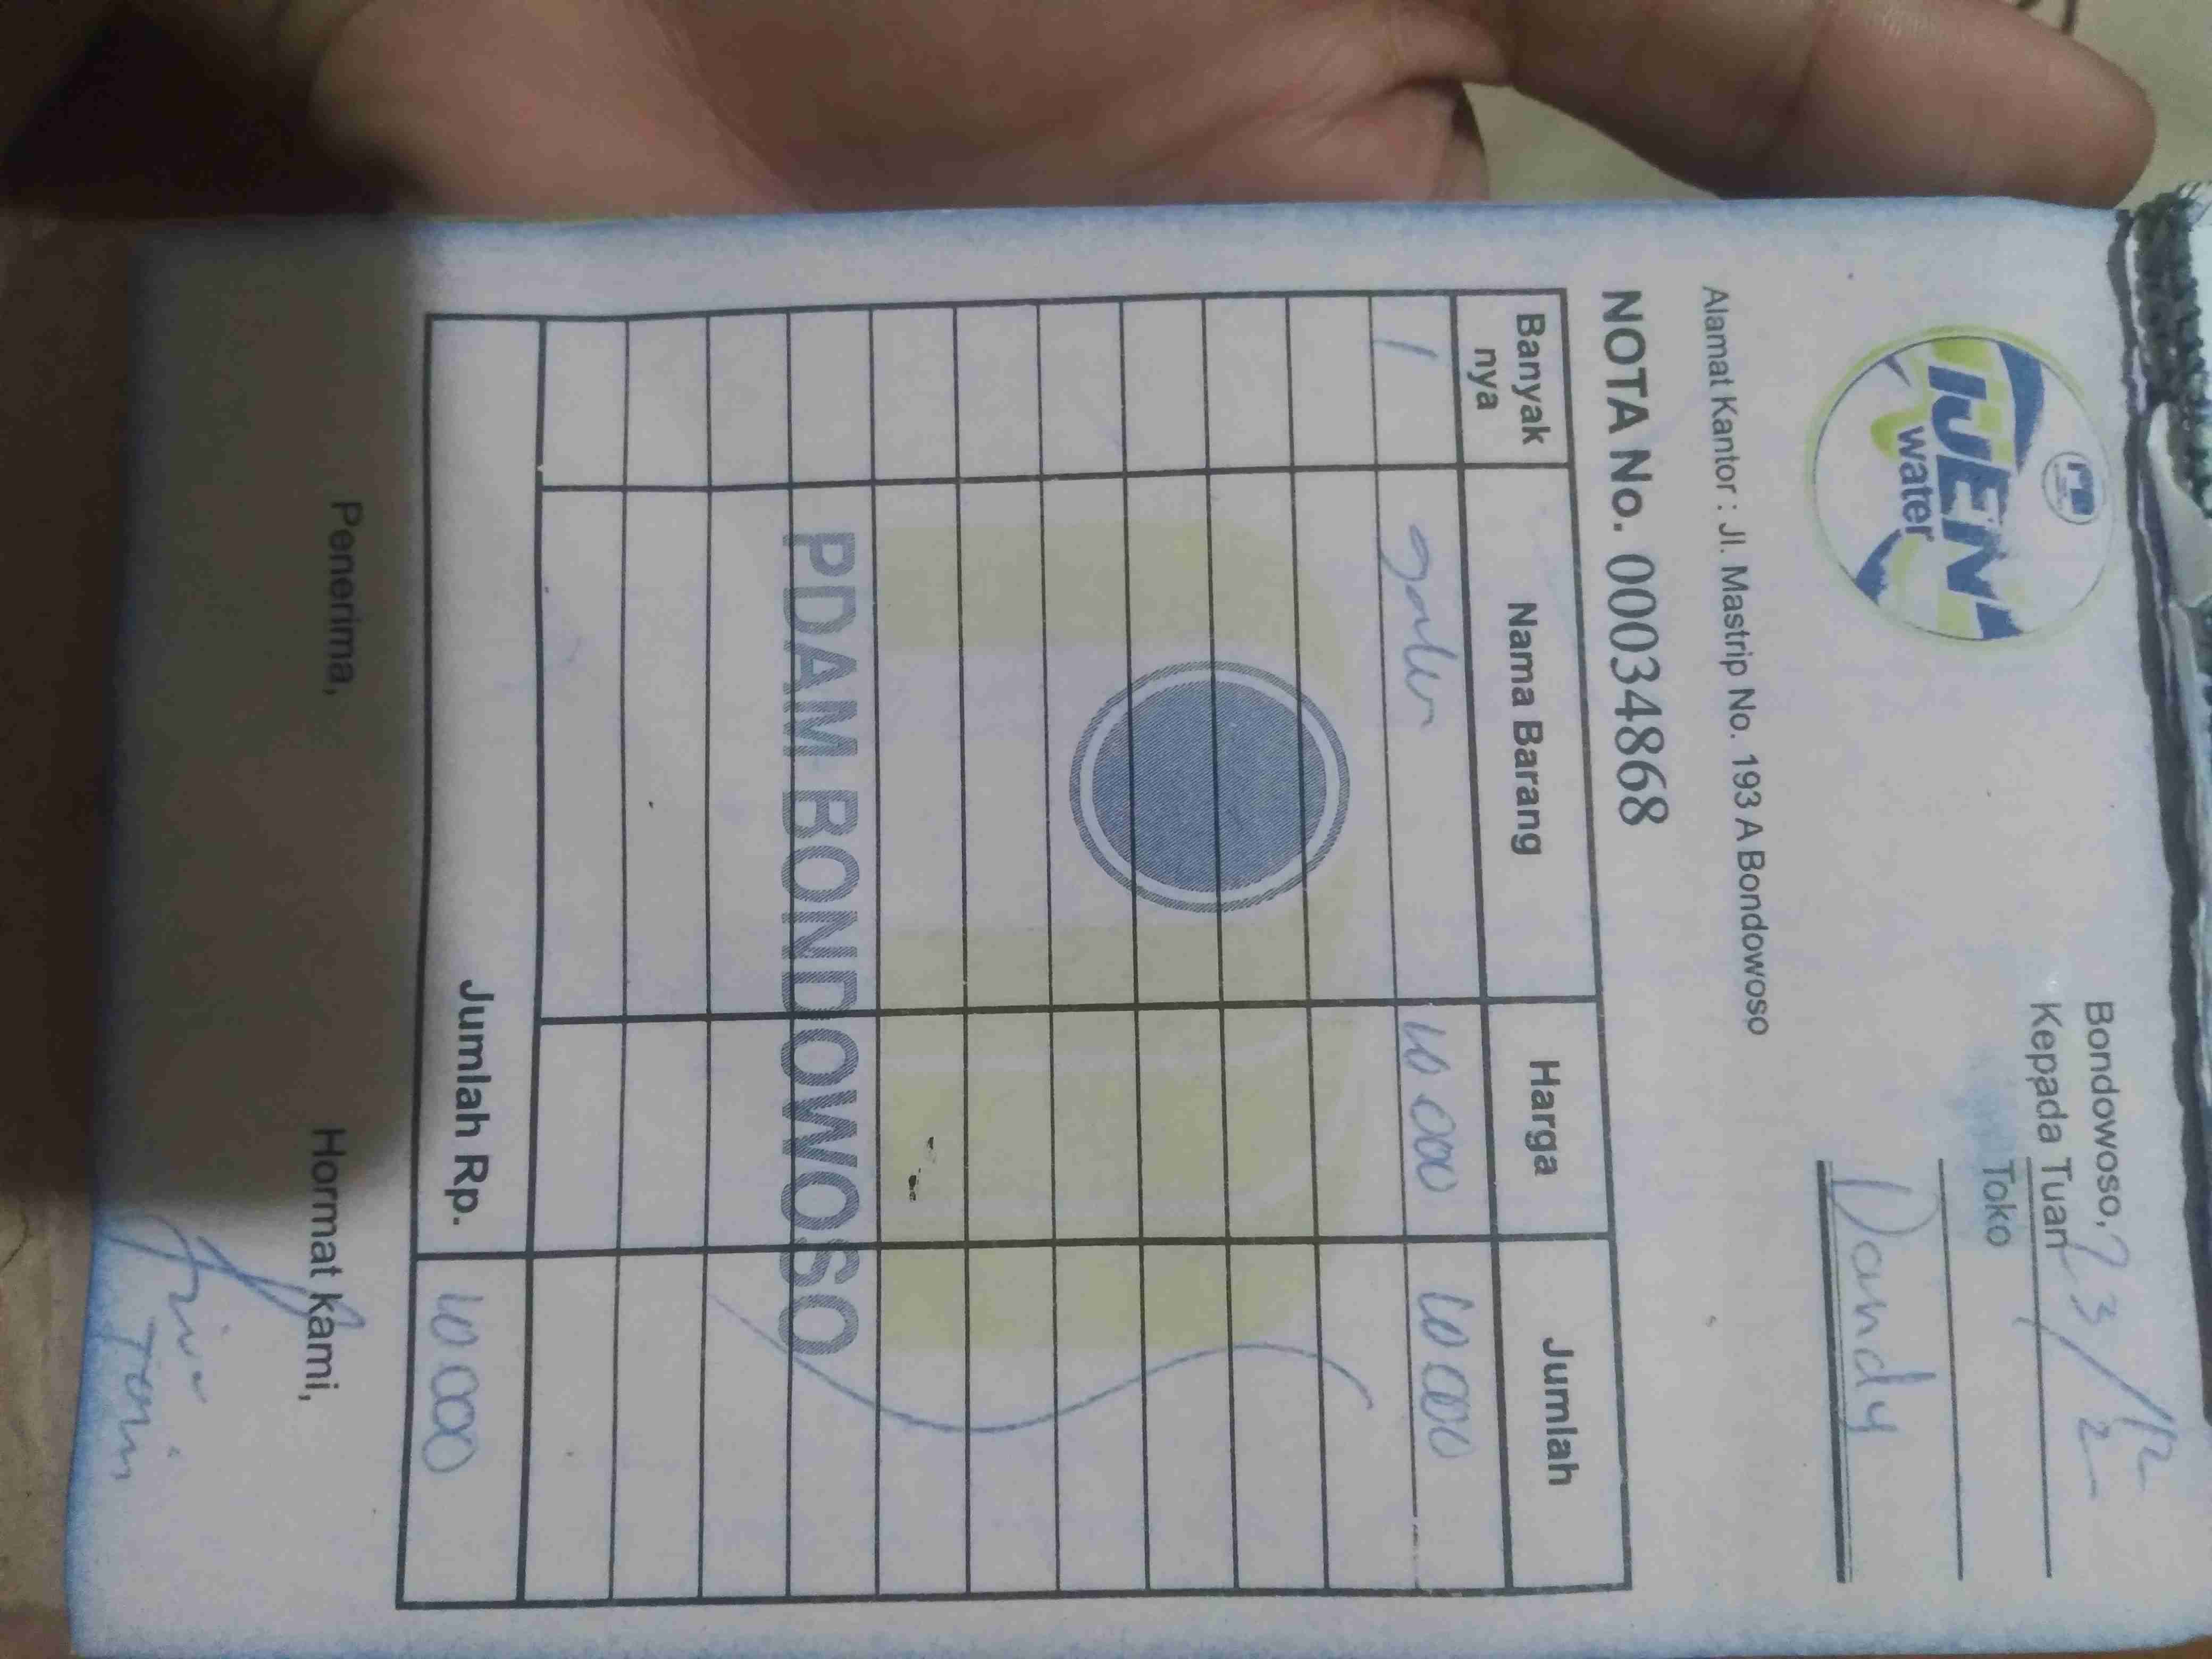 IJEN
water
Bondowoso, 23/12
Kepada Tuan
Toko
Dandy
Alamat Kantor : Jl. Mastrip No. 193 A Bondowoso
NOTA No. 000348868
Banyak nya Nama Barang Harga Jumlah
1 galon 10 000 10 000
PDAM BONDOWOSO
Jumlah Rp. 10 000
Penerima, Hormat kami,